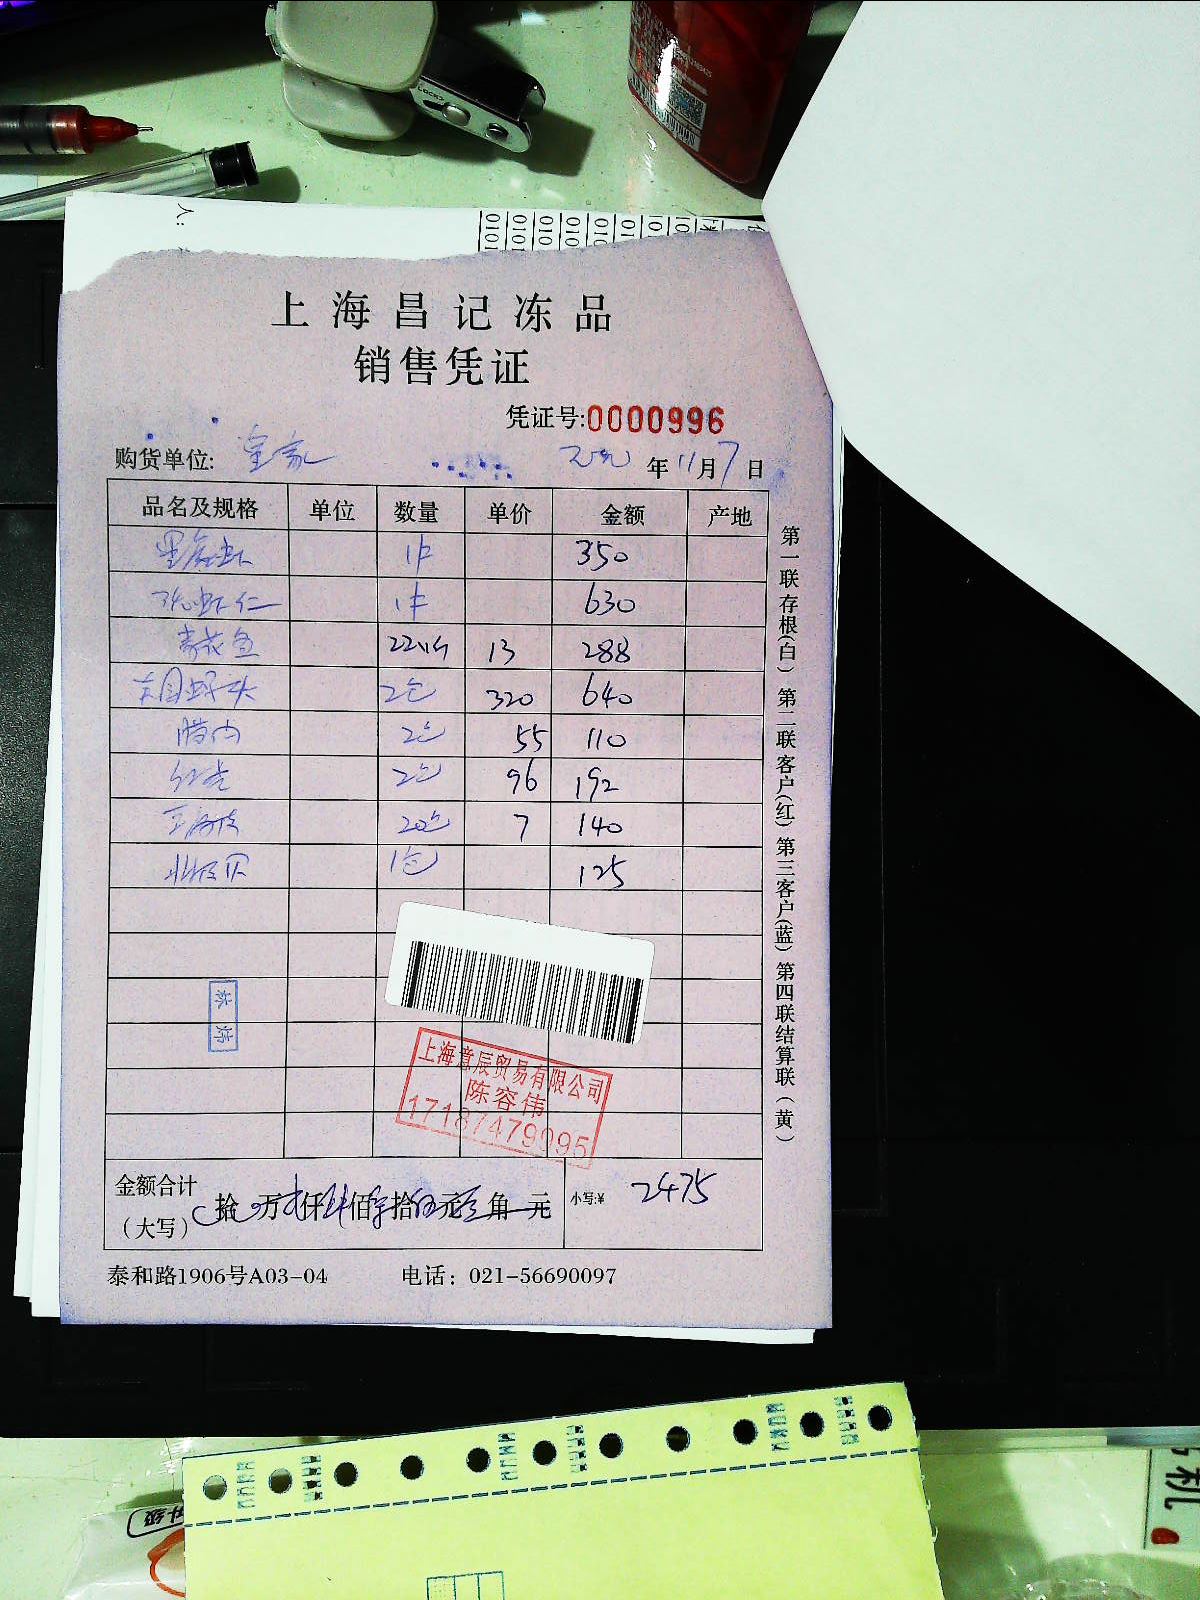 上海昌记冻品
销售凭证
凭证号:0000996
购货单位: 皇家 年11月7日
品名及规格 单位 数量 单价 金额 产地
黑虎虾 1件 350
虾仁 1件 630
青花鱼 22 13 288
2包 320 640
腊肉 2包 55 110
2包 96 192
20包 7 140
北极贝 1包 125
第一联存根(白) 第二联客户(红) 第三客户(蓝) 第四联结算联(黄)
林炜
上海意辰贸易有限公司
陈容伟
17187479095
金额合计
(大写)
拾 万 仟 佰 拾 元 角 元
小写:¥ 2475
泰和路1906号A03-04 电话: 021-56690097
升级
礼